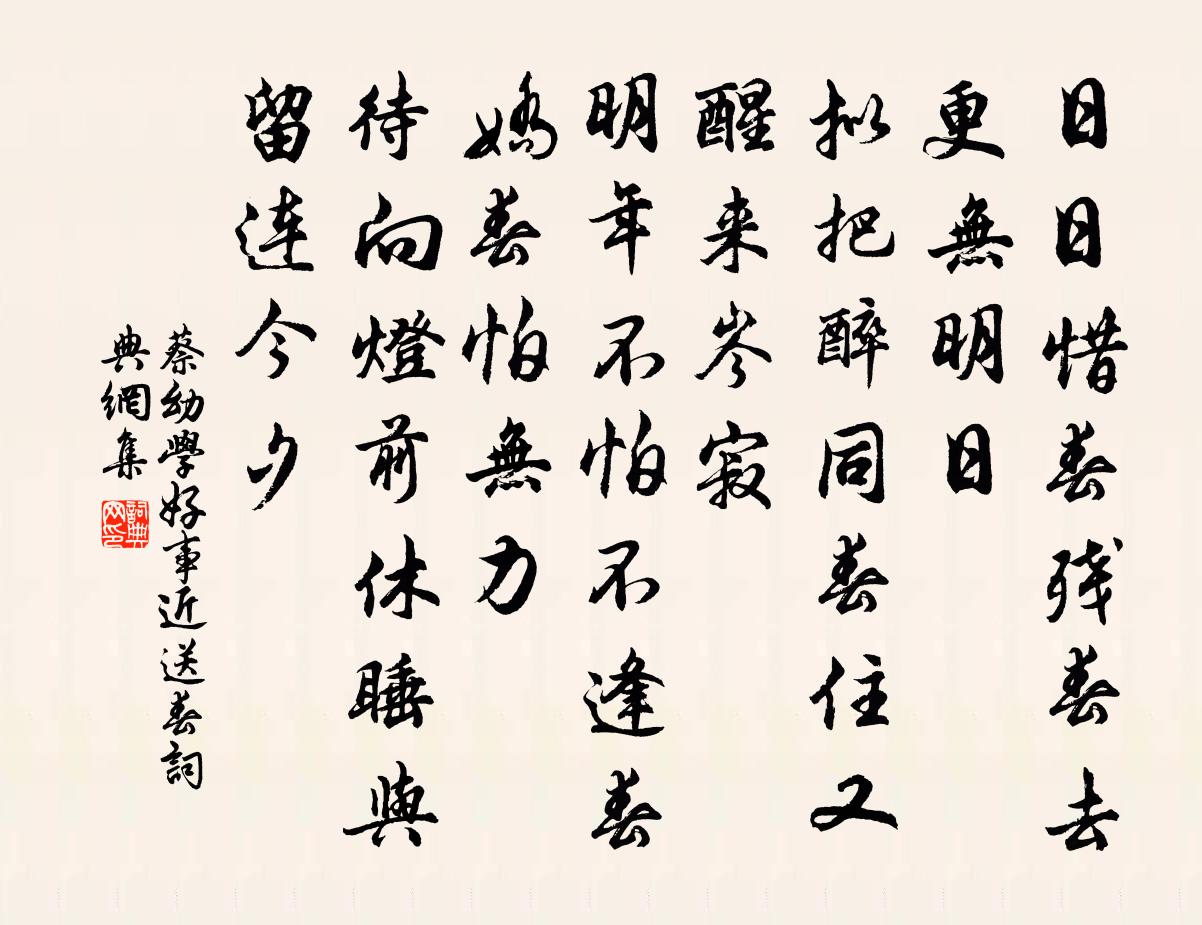 日日惜春殘春去
更無明日
拟把醉同春住又
醒来岑寂
明年不怕不逢春
嬌春怕無力
待向燈前休睡與
留連今夕
蔡幼學好事近送春詞
典網集
詞典网印